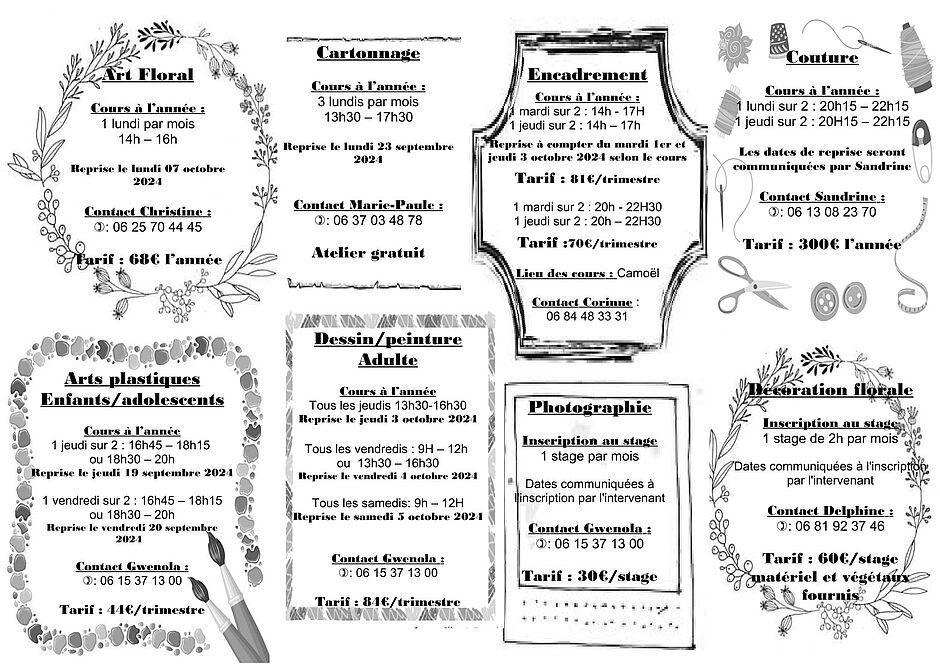 Art Floral
Cours à l'année :
1 lundi par mois
14h – 16h
Reprise le lundi 07 octobre
2024
Contact Christine :
✆: 06 25 70 44 45
Tarif : 68€ l'année
Cartonnage
Cours à l'année :
3 lundis par mois
13h30 – 17h30
Reprise le lundi 23 septembre
2024
Contact Marie-Paule :
✆: 06 37 03 48 78
Atelier gratuit
Encadrement
Cours à l'année :
1 mardi sur 2 : 14h - 17H
1 jeudi sur 2 : 14h – 17h
Reprise à compter du mardi 1er et
jeudi 3 octobre 2024 selon le cours
Tarif : 81€/trimestre
1 mardi sur 2 : 20h - 22H30
1 jeudi sur 2 : 20h – 22H30
Tarif :70€/trimestre
Lieu des cours : Camoël
Contact Corinne :
06 84 48 33 31
Couture
Cours à l'année :
1 lundi sur 2 : 20h15 – 22h15
1 jeudi sur 2 : 20H15 – 22h15
Les dates de reprise seront
communiquées par Sandrine
Contact Sandrine :
✆: 06 13 08 23 70
Tarif : 300€ l'année
Arts plastiques
Enfants/adolescents
Cours à l'année
1 jeudi sur 2 : 16h45 – 18h15
ou 18h30 – 20h
Reprise le jeudi 19 septembre 2024
1 vendredi sur 2 : 16h45 – 18h15
ou 18h30 – 20h
Reprise le vendredi 20 septembre
2024
Contact Gwenola :
✆: 06 15 37 13 00
Tarif : 44€/trimestre
Dessin/peinture
Adulte
Cours à l'année
Tous les jeudis 13h30-16h30
Reprise le jeudi 3 octobre 2024
Tous les vendredis : 9H – 12h
ou 13h30 – 16h30
Reprise le vendredi 4 octobre 2024
Tous les samedis: 9h – 12H
Reprise le samedi 5 octobre 2024
Contact Gwenola :
✆: 06 15 37 13 00
Tarif : 84€/trimestre
Photographie
Inscription au stage
1 stage par mois
Dates communiquées à
l'inscription par l'intervenant
Contact Gwenola :
✆: 06 15 37 13 00
Tarif : 30€/stage
Décoration florale
Inscription au stage :
1 stage de 2h par mois
Dates communiquées à l'inscription
par l'intervenant
Contact Delphine :
✆: 06 81 92 37 46
Tarif : 60€/stage
matériel et végétaux
fournis